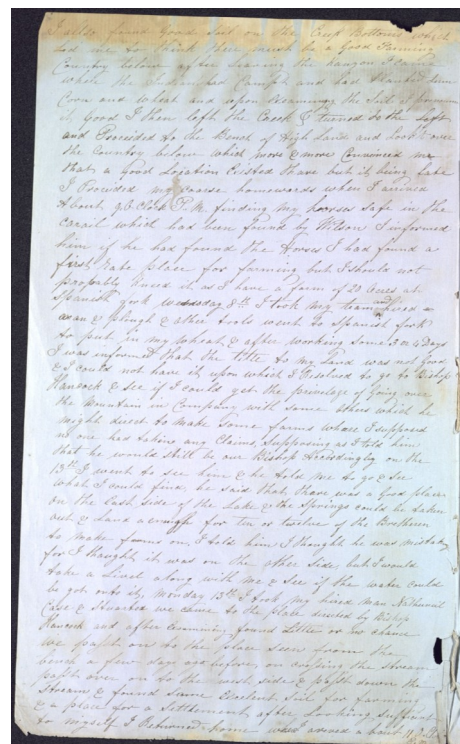 I also found Good Soil on the Bottoms which
led me to think there must be a Good Farming
Country below after leaving the kanyon I came
where the Indians had Campt and had planted some
Corn and wheat and upon Examining the Soil I
it Good I then left the Creek & turned to the Left
and Proceded to the Bench of High Land and Lookt over
the Country below which more & more Convinced me
that a Good Location Existed thare but it being Late
I Proceded my coarse homewords when I arived
About 9 O.Clock P.M. finding my horses safe in the
carail which had been found by Wilson I informed
him if he had found the Horses I had found a
first rate place for farming but I should not
need it as I have a farm of 20 acres at
Spanish fork 8th I took my team hired a
man & plough & other tools went to Spanish fork
to put in my wheat & after working some 3 or 4 Days
I was informed that the title to my Land was not Good
& I could not have it upon which I Resolved to go to Bishop
Hancock & see if I could get the privelage of Going over
the Mountain in Company with some others which he
might direct to make Some farms whare I supposed
no one had taking any Claims, Supposing as I told him
that he would still be our Bishop Accordingly on the
13th I went to see him & he told me to go & see
what I could find, he said that thare was a Good place
on the East side of the Lake & the Springs could be taken
out & have enough for ten or twelve of the Brethren
to make farms on, I told him I thought he was mistaken
for I thought it was on the other Side, but I would
take a Level along with me & See if the water could
be got onto it, Monday 13th I took my hired man
Case & Started we came to the place directed by Bishop
Hancock and after Examining found Little or no chance
we past on to the place seen from the
bench a few days before on crossing the stream
past over on to the west side & past down the
Stream & found Some Excelent Soil for farming
& a place for a Settlement, after Looking sufficent
to myself I Returned home when I arived about